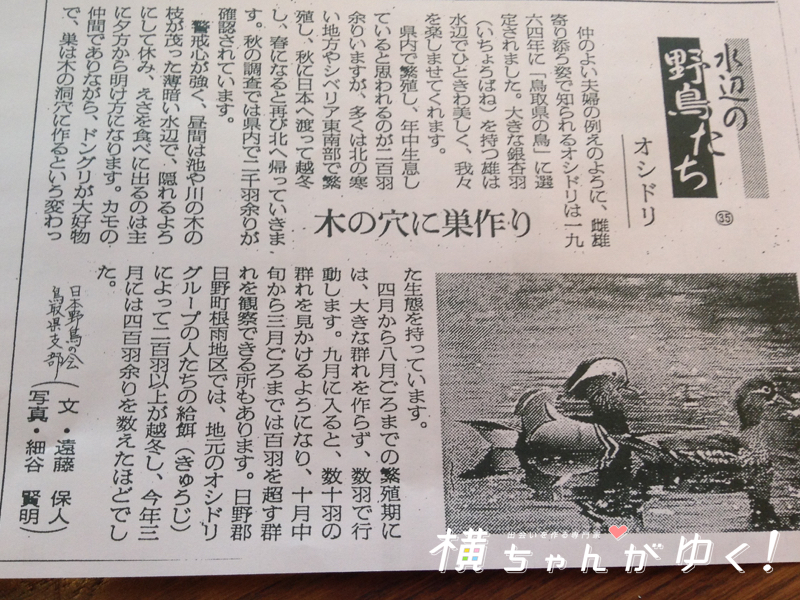 水辺の
野鳥たち
㉟
オシドリ
木の穴に巣作り
仲のよい夫婦の例えのように、雌雄
寄り添う姿で知られるオシドリは一九
六四年に「鳥取県の鳥」に選
定されました。大きな銀杏羽
（いちょうばね）を持つ雄は
水辺でひときわ美しく、我々
を楽しませてくれます。
県内で繁殖し、年中生息し
ていると思われるのが二百羽
余りいますが、多くは北の寒
い地方やシベリア東南部で繁
殖し、秋に日本へ渡って越冬
し、春になると再び北へ帰っていきま
す。秋の調査では県内で二千羽余りが
確認されています。
警戒心が強く、昼間は池や川の木の
枝が茂った薄暗い水辺で、隠れるよう
にして休み、えさを食べに出るのは主
に夕方から明け方になります。カモの
仲間でありながら、ドングリが大好物
で、巣は木の洞穴に作るという変わっ
た生態を持っています。
四月から八月ごろまでの繁殖期に
は、大きな群れを作らず、数羽で行
動します。九月に入ると、数十羽の
群れを見かけるようになり、十月中
旬から三月ごろまでは百羽を超す群
れを観察できる所もあります。日野郡
日野町根雨地区では、地元のオシドリ
グループの人たちの給餌（きゅうじ）
によって二百羽以上が越冬し、今年三
月には四百羽余りを数えたほどでし
た。
日本野鳥の会
鳥取県支部
（文・遠藤 保人）
（写真・細谷 賢明）
出会いを作る専門家
横ちゃんがゆく！